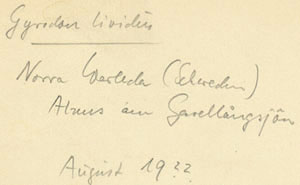 Gyrodon lividus
Norra Warleda (Schweden)
Alnus am Gavellångsjön
August 19??